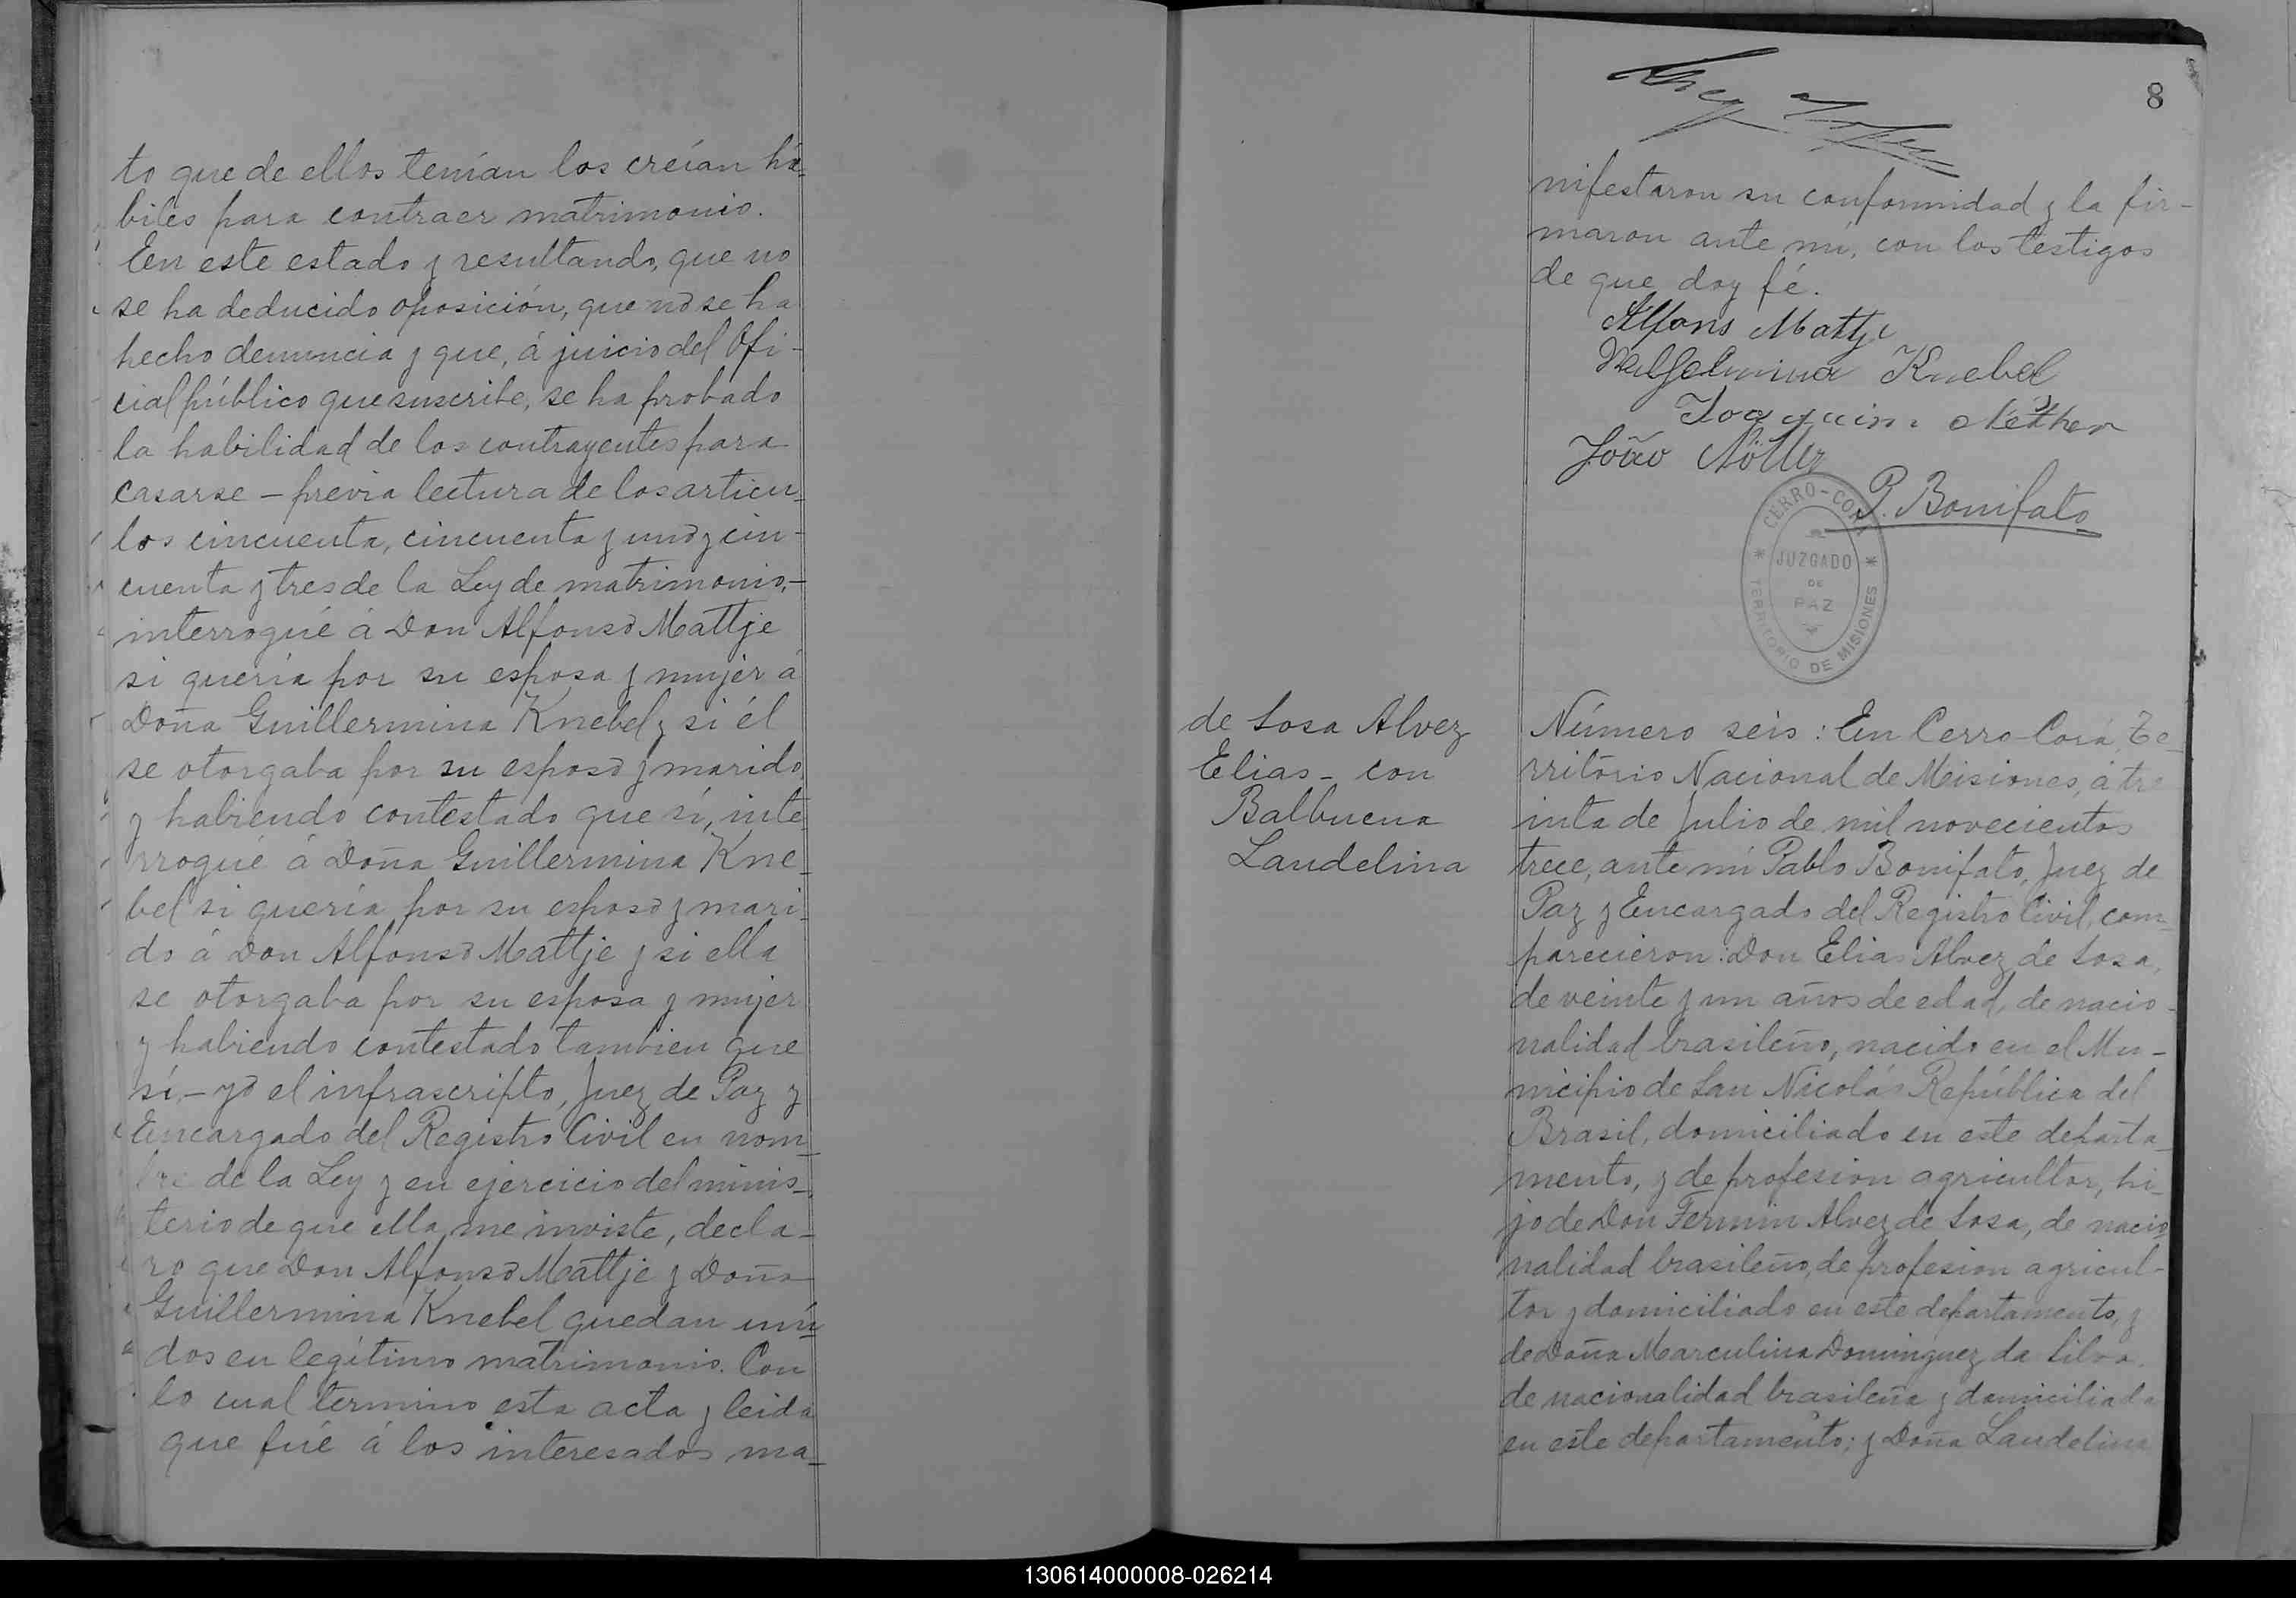 to que de ellos tenían los creían há-
biles para contraer matrimonio.
En este estado y resultando, que no
se ha deducido oposición, que no se ha
hecho denuncia y que, á juicio del Ofi-
cial público que suscribe, se ha probado
la habilidad de los contrayentes para
casarse – previa lectura de los articu-
los cincuenta, cincuenta y uno y cin-
cuenta y tres de la Ley de matrimonio, –
interrogué á Don Alfonso Mattje
si quería por su esposa y mujer á
Doña Guillermina Knebel y si él
se otorgaba por su esposo y marido,
y habiendo contestado que sí, inte-
rrogué á Doña Guillermina Kne-
bel si quería por su esposo y mari-
do á Don Alfonso Mattje y si ella
se otorgaba por su esposa y mujer
y habiendo contestado tambien que
sí, – yo el infrascripto, Juez de Paz y
Encargado del Registro Civil en nom-
bre de la Ley y en ejercicio del minis-
terio de que ella me inviste, decla-
ro que Don Alfonso Mattje y Doña
Guillermina Knebel quedan uni-
dos en legítimo matrimonio. Con
lo cual termino esta acta y leida
que fué á los interesados ma-
8
nifestaron su conformidad y la fir-
maron ante mí, con los testigos
de que doy fé.
Alfons Mattje
Knebel
Joaquim Nether
João Nöller
P. Bonifato
CERRO-CORÁ
JUZGADO
DE
PAZ
TERRITORIO DE MISIONES
de Sosa Alvez
Elias – con
Balbuena
Laudelina
Número seis: En Cerro Corá, Te-
rritorio Nacional de Misiones, á tre
inta de Julio de mil novecientos
trece, ante mí Pablo Bonifato, Juez de
Paz y Encargado del Registro Civil, com-
parecieron: Don Elias Alvez de Sosa,
de veinte y un años de edad, de nacio-
nalidad brasileño, nacido en el Mu-
nicipio de San Nicolás República del
Brasil, domiciliado en este departa-
mento, y de profesion agricultor, hi-
jo de Don Fermin Alvez de Sosa, de nacio-
nalidad brasileño, de profesion agricul-
tor y domiciliado en este departamento, y
de Doña Marculina Dominguez da Silva,
de nacionalidad brasileña y domiciliada
en este departamento; y Doña Laudelina
130614000008-026214